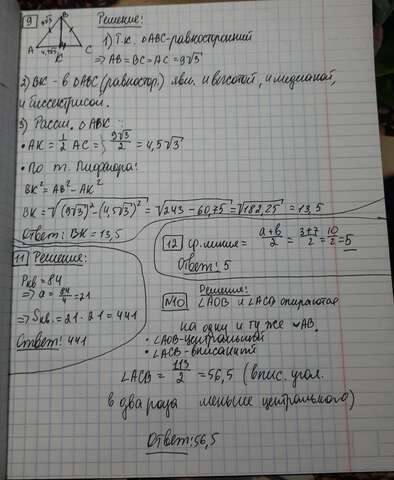 9
B
9√3
A
4,5√3
K
C
Решение:
1) Т.к. △ABC-равносторонний
⇒ AB=BC=AC=9√3
2) BK - в △ABC (равностор.) явл. и высотой, и медианой,
и биссектрисой.
3) Рассм. △ABK:
• AK = 1/2 AC = 9√3/2 = 4,5√3
• По т. Пифагора:
BK² = AB² - AK²
BK = √(9√3)² - (4,5√3)² = √243 - 60,75 = √182,25 = 13,5
Ответ: BK = 13,5
12 ср. линия = a+b/2 = 3+7/2 = 10/2 = 5
Ответ: 5
11 Решение:
Pкв = 84
⇒ a = 84/4 = 21
⇒ Sкв. = 21 · 21 = 441
Ответ: 441
№10 Решение:
∠AOB и ∠ACB опираются
на одну и ту же ◡AB.
• ∠AOB-центральный
• ∠ACB-вписанный
∠ACB = 113/2 = 56,5 (впис. угол.
в два раза меньше центрального)
Ответ: 56,5